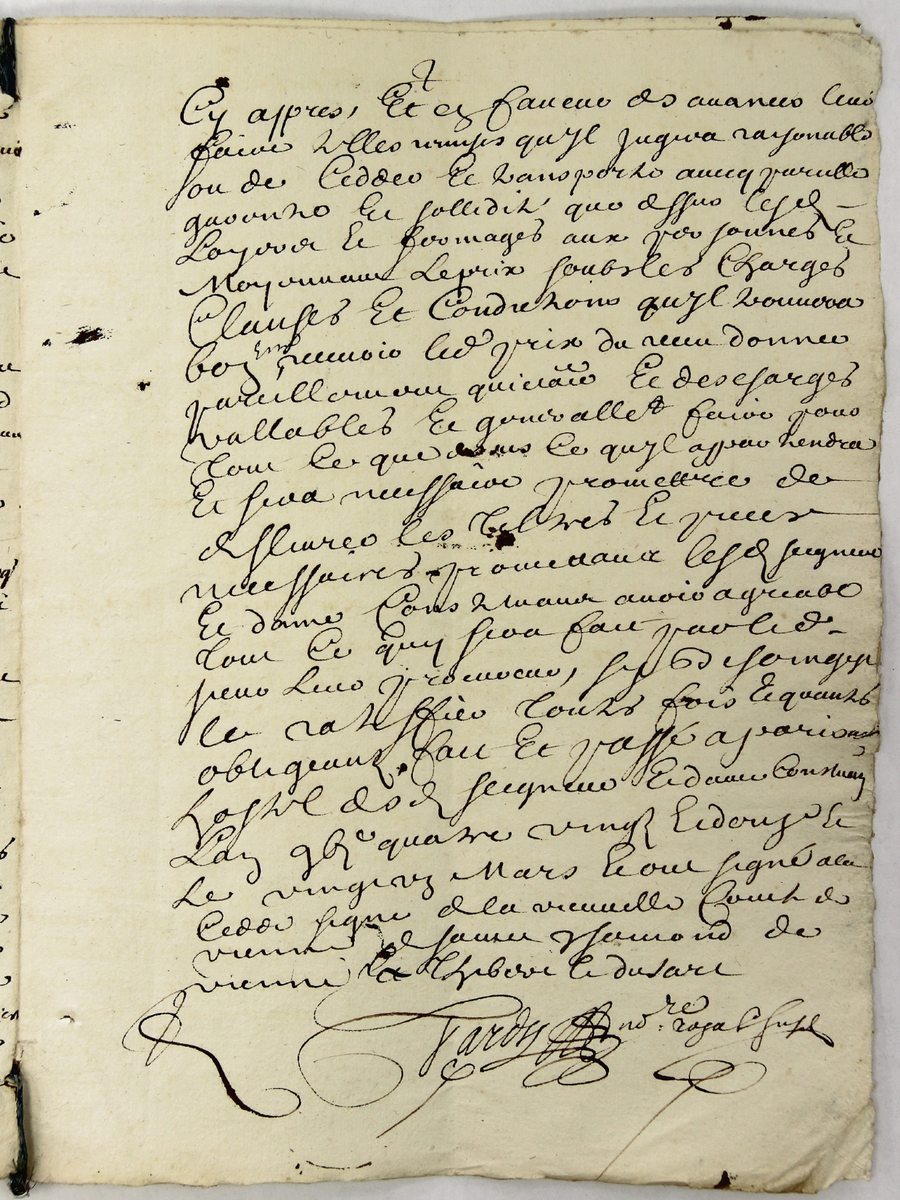 Cy apres, Et en faueur des auances leur
faire telles remises qu'yl jugera raisonable
ou de Cedder Et transporter auecq pareille
garentie Et sollidité que dessus lesd
Loyers Et fermages aux personnes Et
Moyennant Le prix soubs les Charges
Clauses Et Conditions qu'yl trouuera
bon Estre, receuoir led prix du tout donner
pareillement quictāce Et descharges
vallables Et generallemt faire pour
tout Ce que dessus Ce qu'yl appartiendra
Et sera necessaire promettre de
desliurer les tiltres Et pieces
necessaires, promettant lesd seigneur
Et dame Constituans auoir agreable
tout Ce quy sera fait par led
sieur leur procureur,
le ratiffier touts fois Et quants
obligeant, fait Et passé a paris en
L'hostel desd seigneur Et dame Constituans
L'an gbje quatre vingt Et douze Et
Le vingt Mars Et ont signé a la
Cedde signé de la vieuuille Comte de
vienne de Et
vienne Et Lefebvre Et dusart
Tardy nore royal